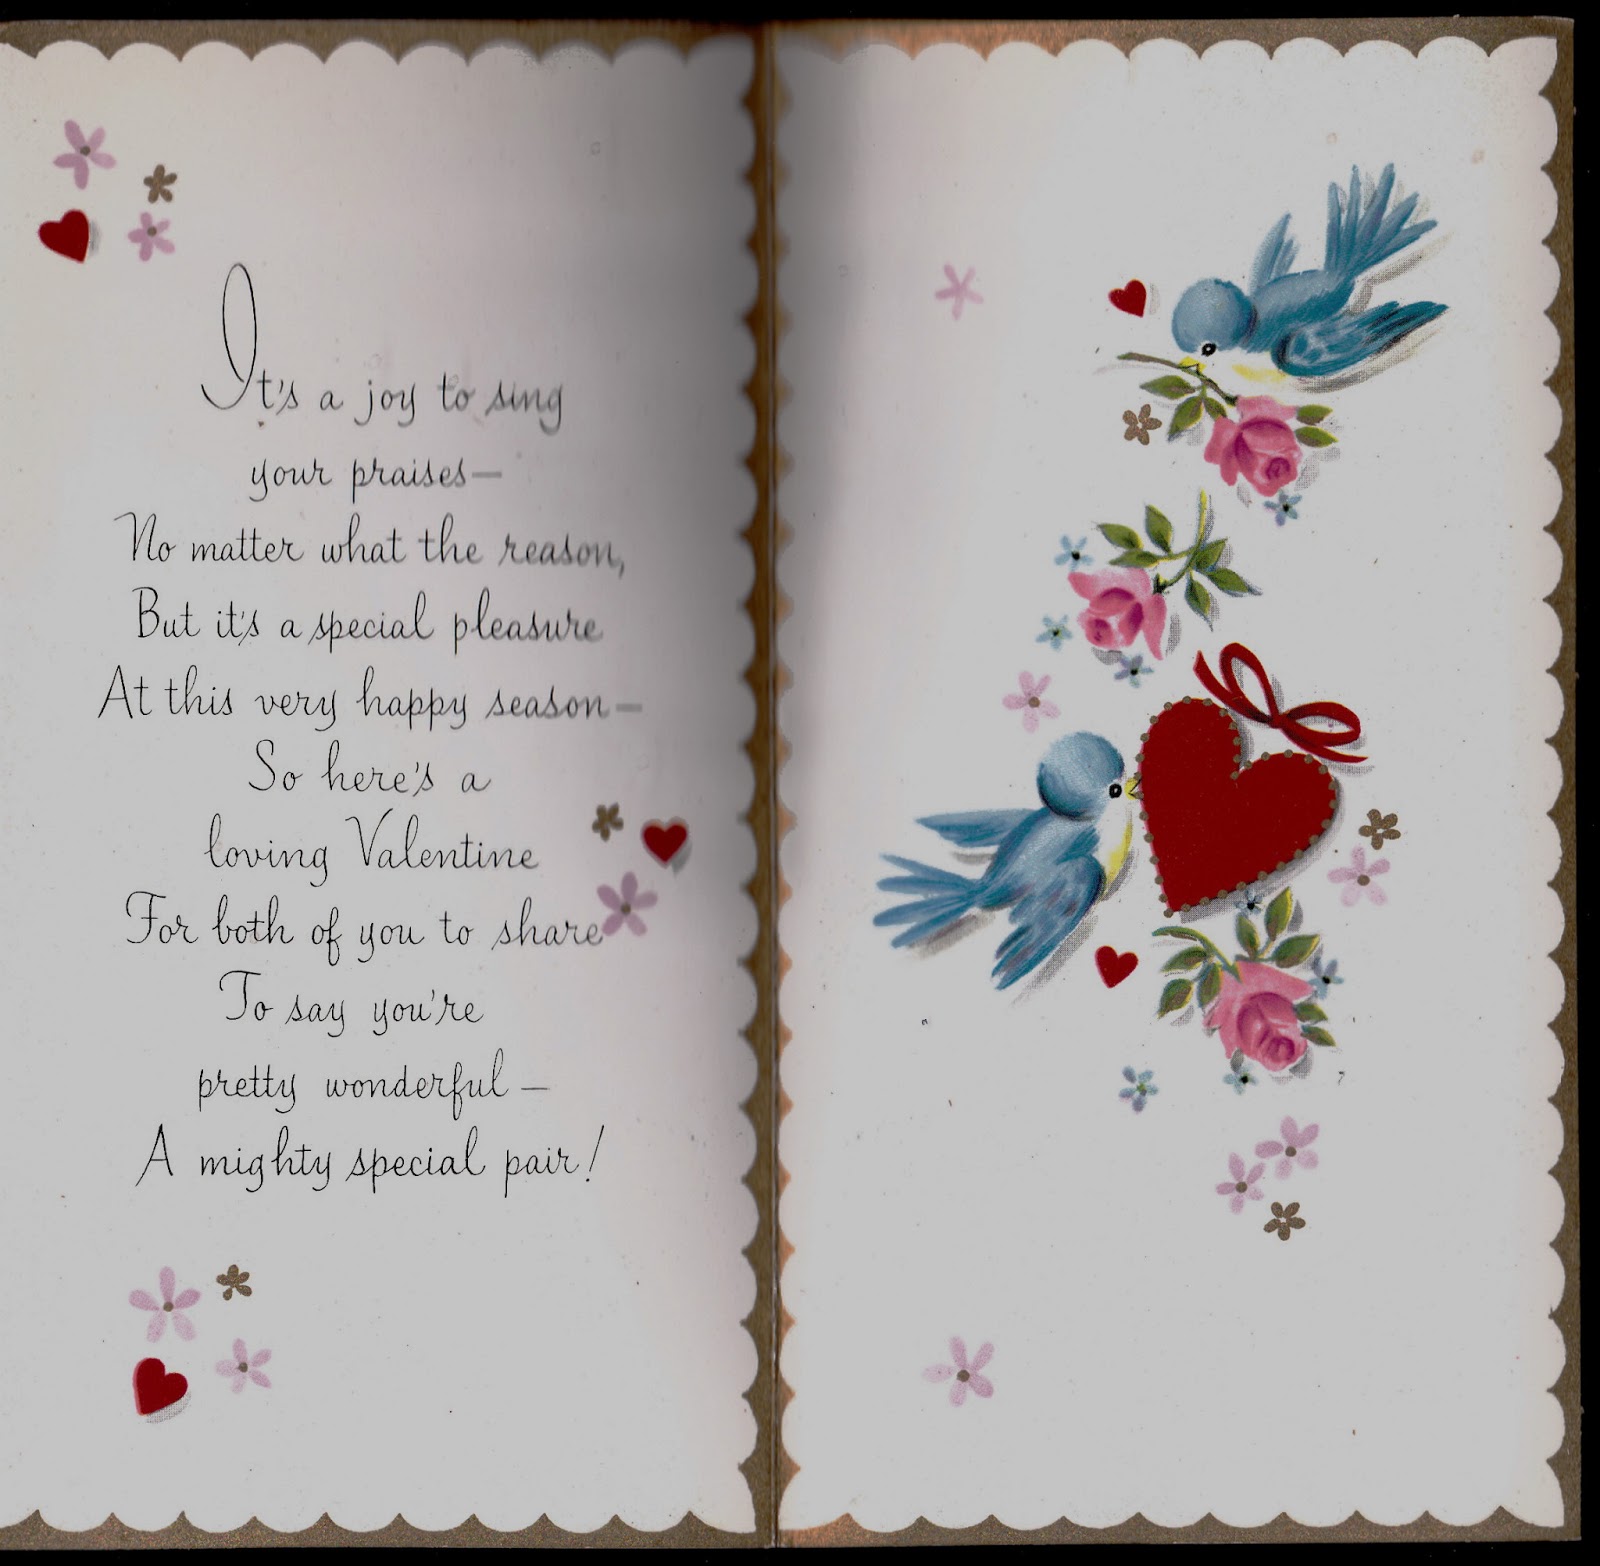 It's a joy to sing
your praises—
No matter what the reason,
But it's a special pleasure
At this very happy season—
So here's a
loving Valentine
For both of you to share
To say you're
pretty wonderful—
A mighty special pair!